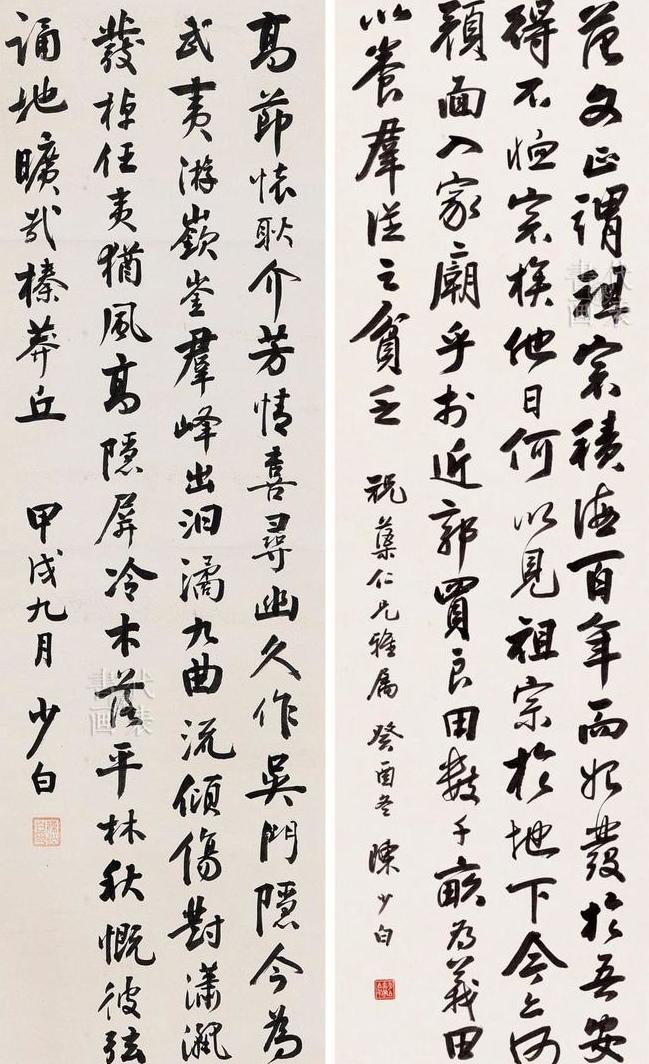 范文正謂祖宗積德百年而始發於吾安
得不恤宗族他日何以見祖宗於地下今亦何
顏面入家廟乎於近郭買良田數千畝為義田
以養羣從之貧乏
祝蕖仁兄雅屬 癸酉冬 陳少白
高節懷耿介芳情喜尋幽久作吳門隱今為
武夷游嶔崟羣峰出汩潏九曲流傾傷對瀟灑
發棹任夷猶風高隱屏冷木落平林秋慨彼弦
誦地曠哉榛莽丘
甲戌九月 少白